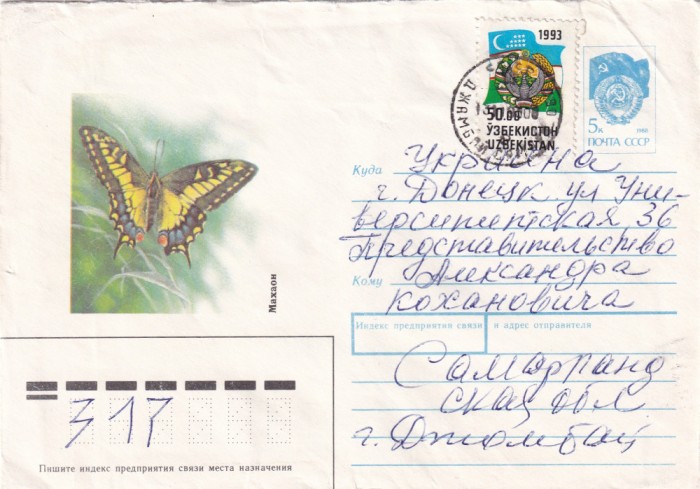 1993
50.00
ЎЗБЕКИСТОН
UZBEKISTAN
5к 1988
ПОЧТА СССР
Махаон
Куда Украина
г. Донецк. ул Уни-
верситетская 36
Представительство
Кому Александра
Кохановича
Индекс предприятия связи и адрес отправителя
Самарканд
ская обл
г. Джомбой
317
Пишите индекс предприятия связи места назначения